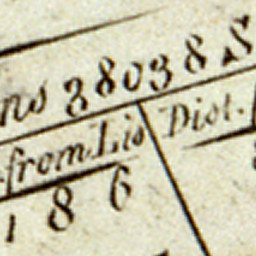 ns 38038 S
from Lis Dist.
1 8 6